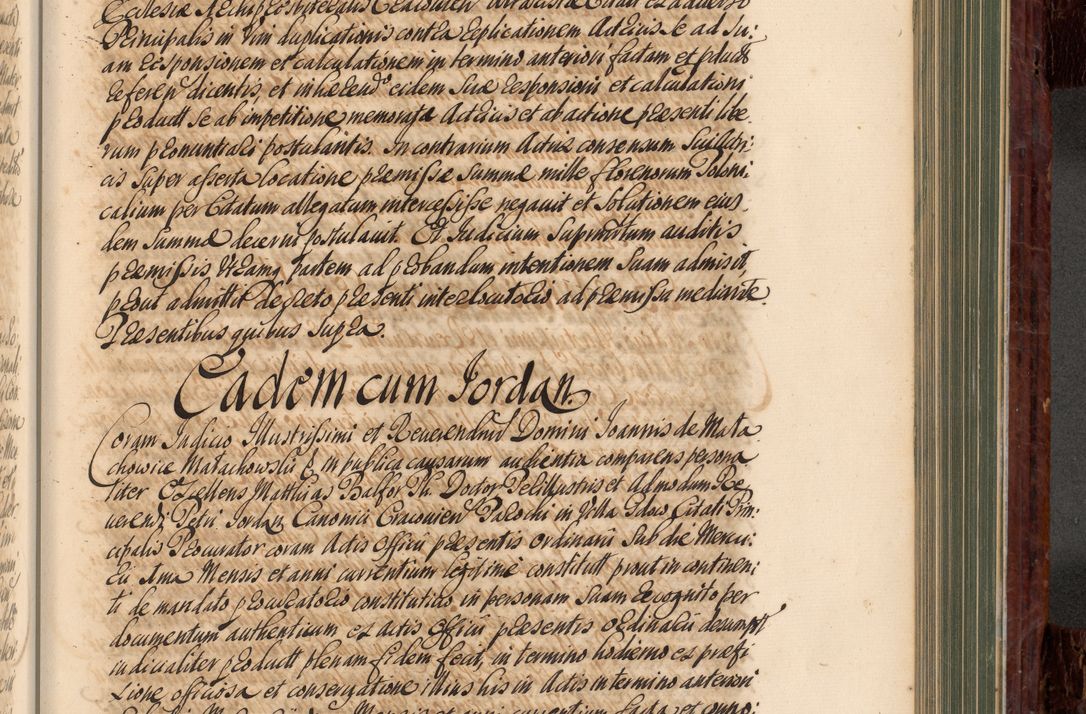 Ecclesiæ Archipresbyteralis
Principalis in vim duplicationis contra Replicationem Actricis se ad Su:
am Responsionem et calculationem in termino anteriori factam et product
referen dicentis et inhærend eidem suæ responsioni et calculationi
product se ab impetitione memoratæ Actricis et ab actione præsenti libe
rum pronuntiari postulantis. In contrarium Actrix consensum
cis super asserta locatione præmissæ Summæ mille florenorum Poloni
calium per Citatum allegatum intercessisse negavit et Solutionem eius
dem Summæ decerni postulavit. Et Judicium Supranttum auditis
præmissis utramq partem ad probandum intentionem suam admisit
prout admittit decreto præsenti interlocutorio ad præmissa mediante
Præsentibus quibus supra.
Eadem cum Jordan
Coram Judicio Illustrissimi et Reverendmi Domini Joannis de Mała
chowice Małachowski & in publica causarum audientia comparens persona
liter Excellens Matthias Balfor Ph. Doctor Perillustris et Admodum Re
verendi Petri Jordan Canonici Cracovien Parochi in Villa Citati Prin:
cipalis Procurator coram Actis Officii præsentis ordinarii sub die Mercu:
rii 4ma Mensis et anni currentium legitime constitutt prout in continen:
ti de mandato procuratorio constitutivo in personam suam recognito per
documentum authenticum ex actis Officii præsentis ordinarii desumptt
iudicialiter productt plenam fidem fecit, in termino hodierno ex præfi
xione officiosa et conservatione illius his in Actis in termino anteriori
Mensis et anni currentium facta et